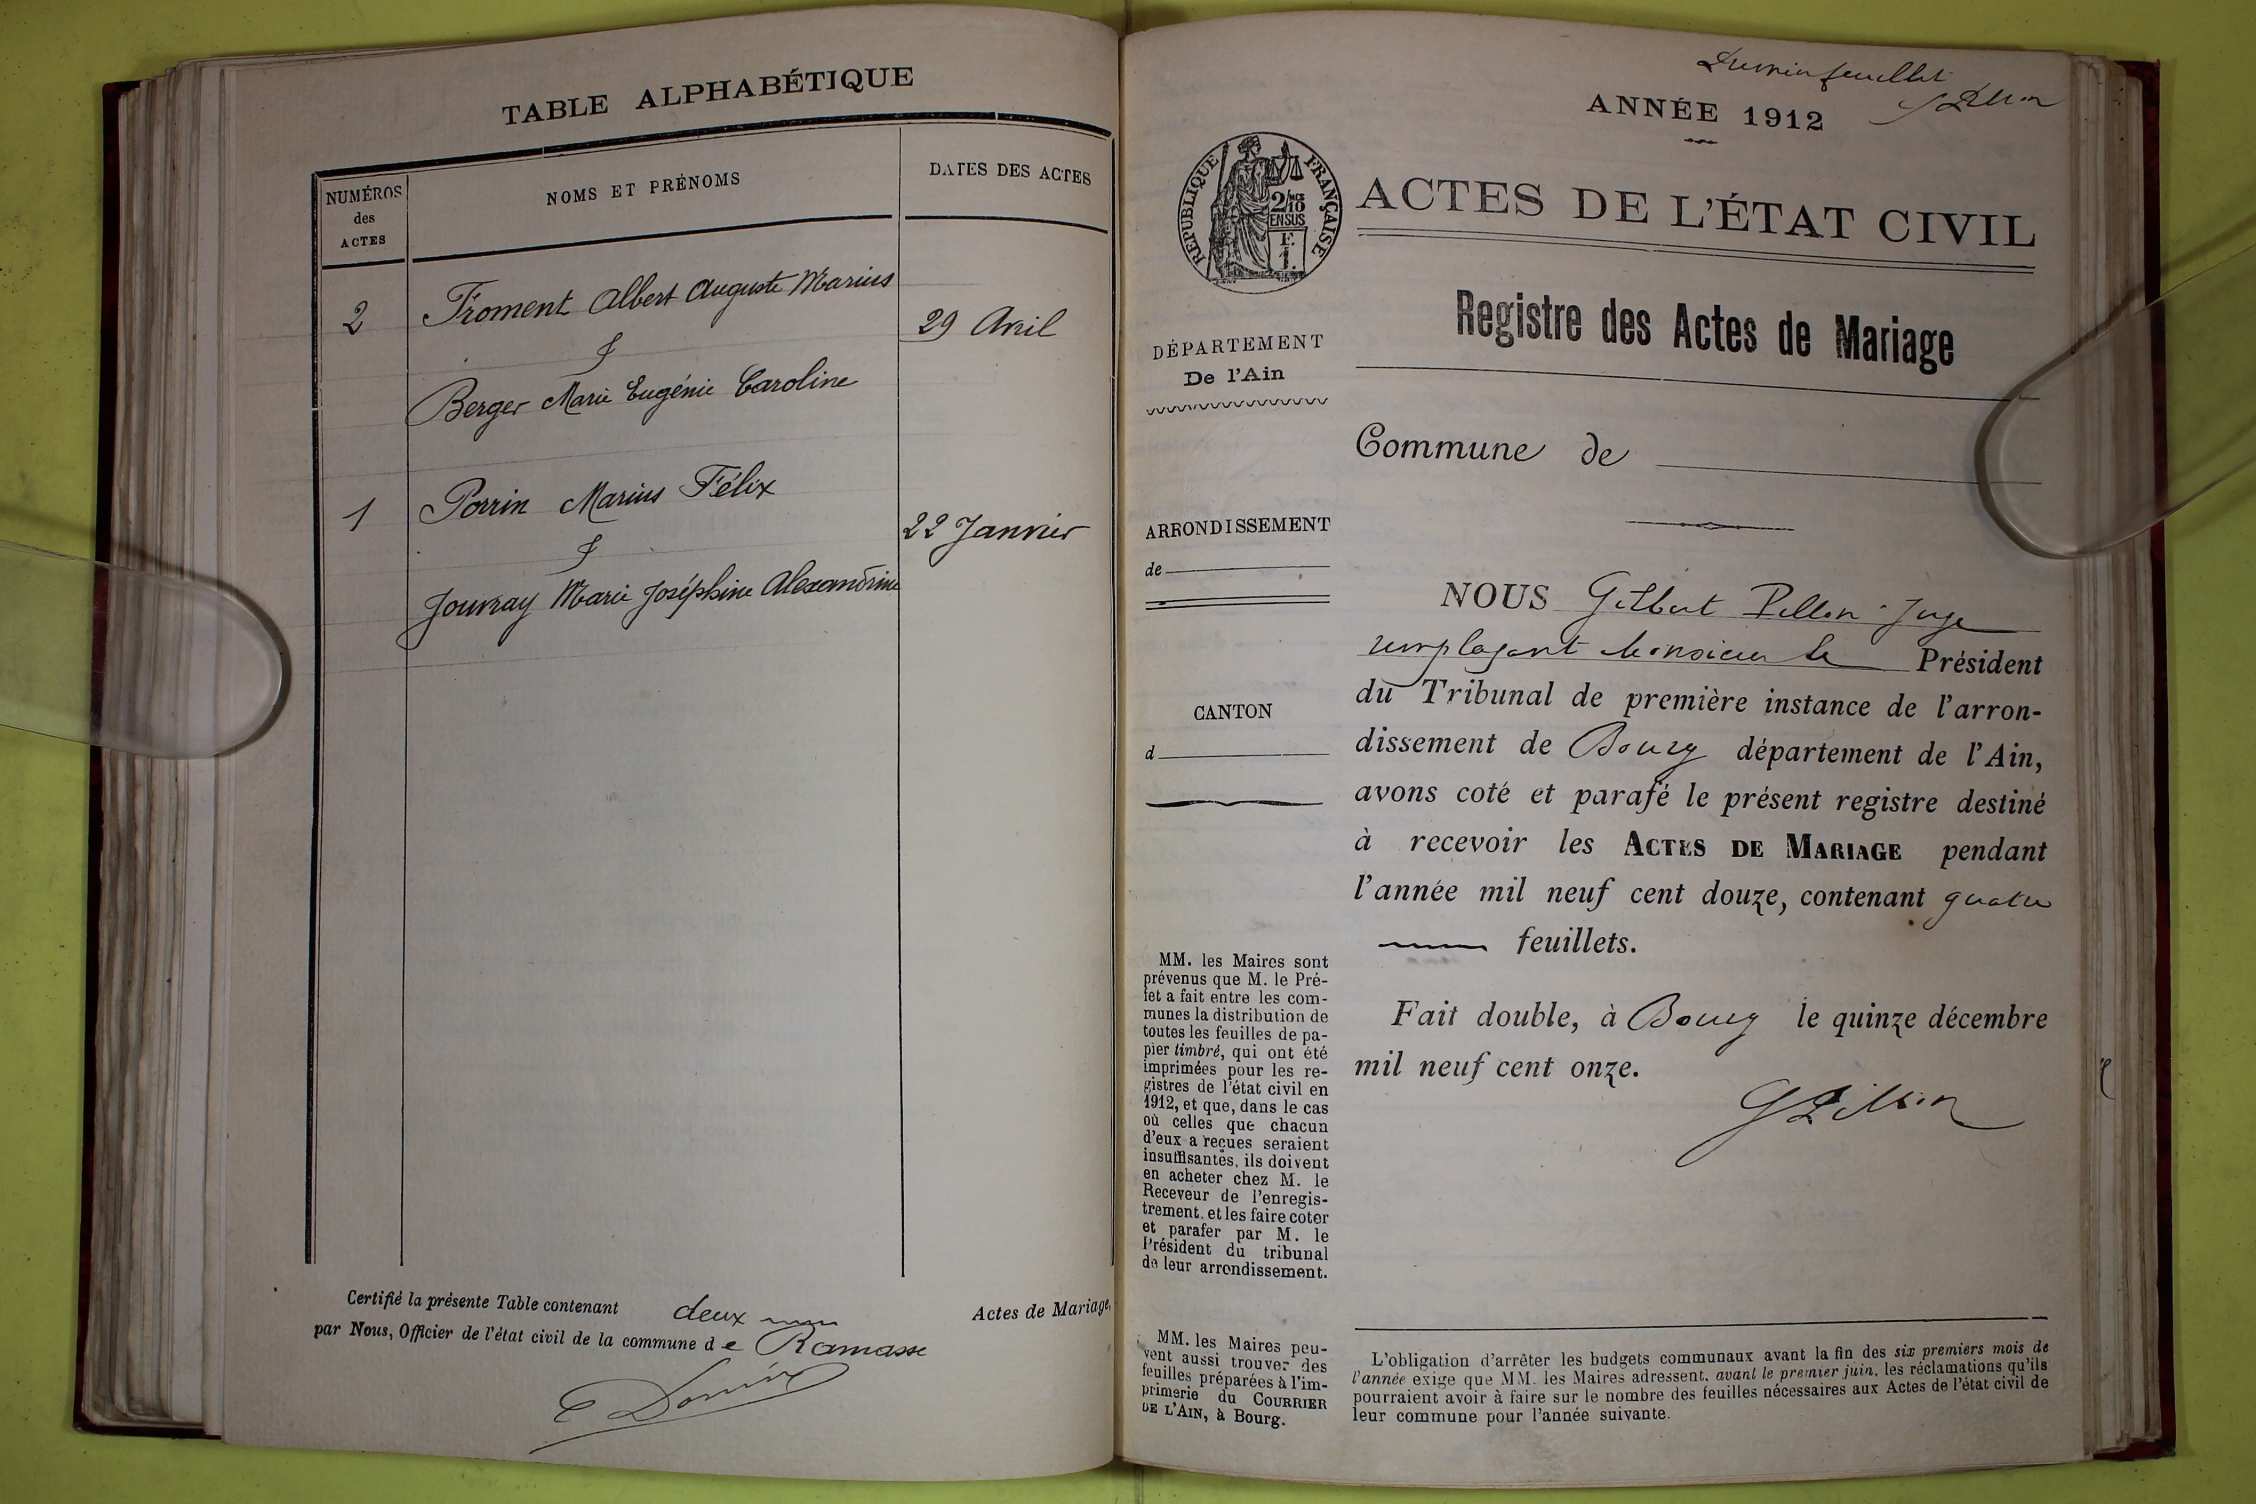 TABLE ALPHABÉTIQUE
NUMÉROS
des
ACTES
NOMS ET PRÉNOMS
DATES DES ACTES
2
Froment Albert Auguste Marius
29 Avril
&
Berger Marie Eugénie Caroline
1
Perrin Marius Félix
22 Janvier
&
Jouvray Marie Joséphine Alexandrine
Certifié la présente Table contenant deux Actes de Mariage,
par Nous, Officier de l'état civil de la commune de Ramasse
feuillet
ANNÉE 1912
RÉPUBLIQUE FRANÇAISE
2/10
EN SUS
F.
1.
ACTES DE L'ÉTAT CIVIL
Registre des Actes de Mariage
DÉPARTEMENT
De l'Ain
Commune de
ARRONDISSEMENT
de
CANTON
d
MM. les Maires sont
prévenus que M. le Pré-
fet a fait entre les com-
munes la distribution de
toutes les feuilles de pa-
pier timbré, qui ont été
imprimées pour les re-
gistres de l'état civil en
1912, et que, dans le cas
où celles que chacun
d'eux a reçues seraient
insuffisantes, ils doivent
en acheter chez M. le
Receveur de l'enregis-
trement, et les faire coter
et parafer par M. le
Président du tribunal
de leur arrondissement.
MM. les Maires peu-
vent aussi trouver des
feuilles préparées à l'im-
primerie du COURRIER
DE L'AIN, à Bourg.
NOUS Gilbert Pillon Juge
remplaçant Monsieur le Président
du Tribunal de première instance de l'arron-
dissement de Bourg département de l'Ain,
avons coté et parafé le présent registre destiné
à recevoir les ACTES DE MARIAGE pendant
l'année mil neuf cent douze, contenant quatre
feuillets.
Fait double, à Bourg le quinze décembre
mil neuf cent onze.
GPillon
L'obligation d'arrêter les budgets communaux avant la fin des six premiers mois de
l'année exige que MM. les Maires adressent, avant le premier juin, les réclamations qu'ils
pourraient avoir à faire sur le nombre des feuilles nécessaires aux Actes de l'état civil de
leur commune pour l'année suivante.